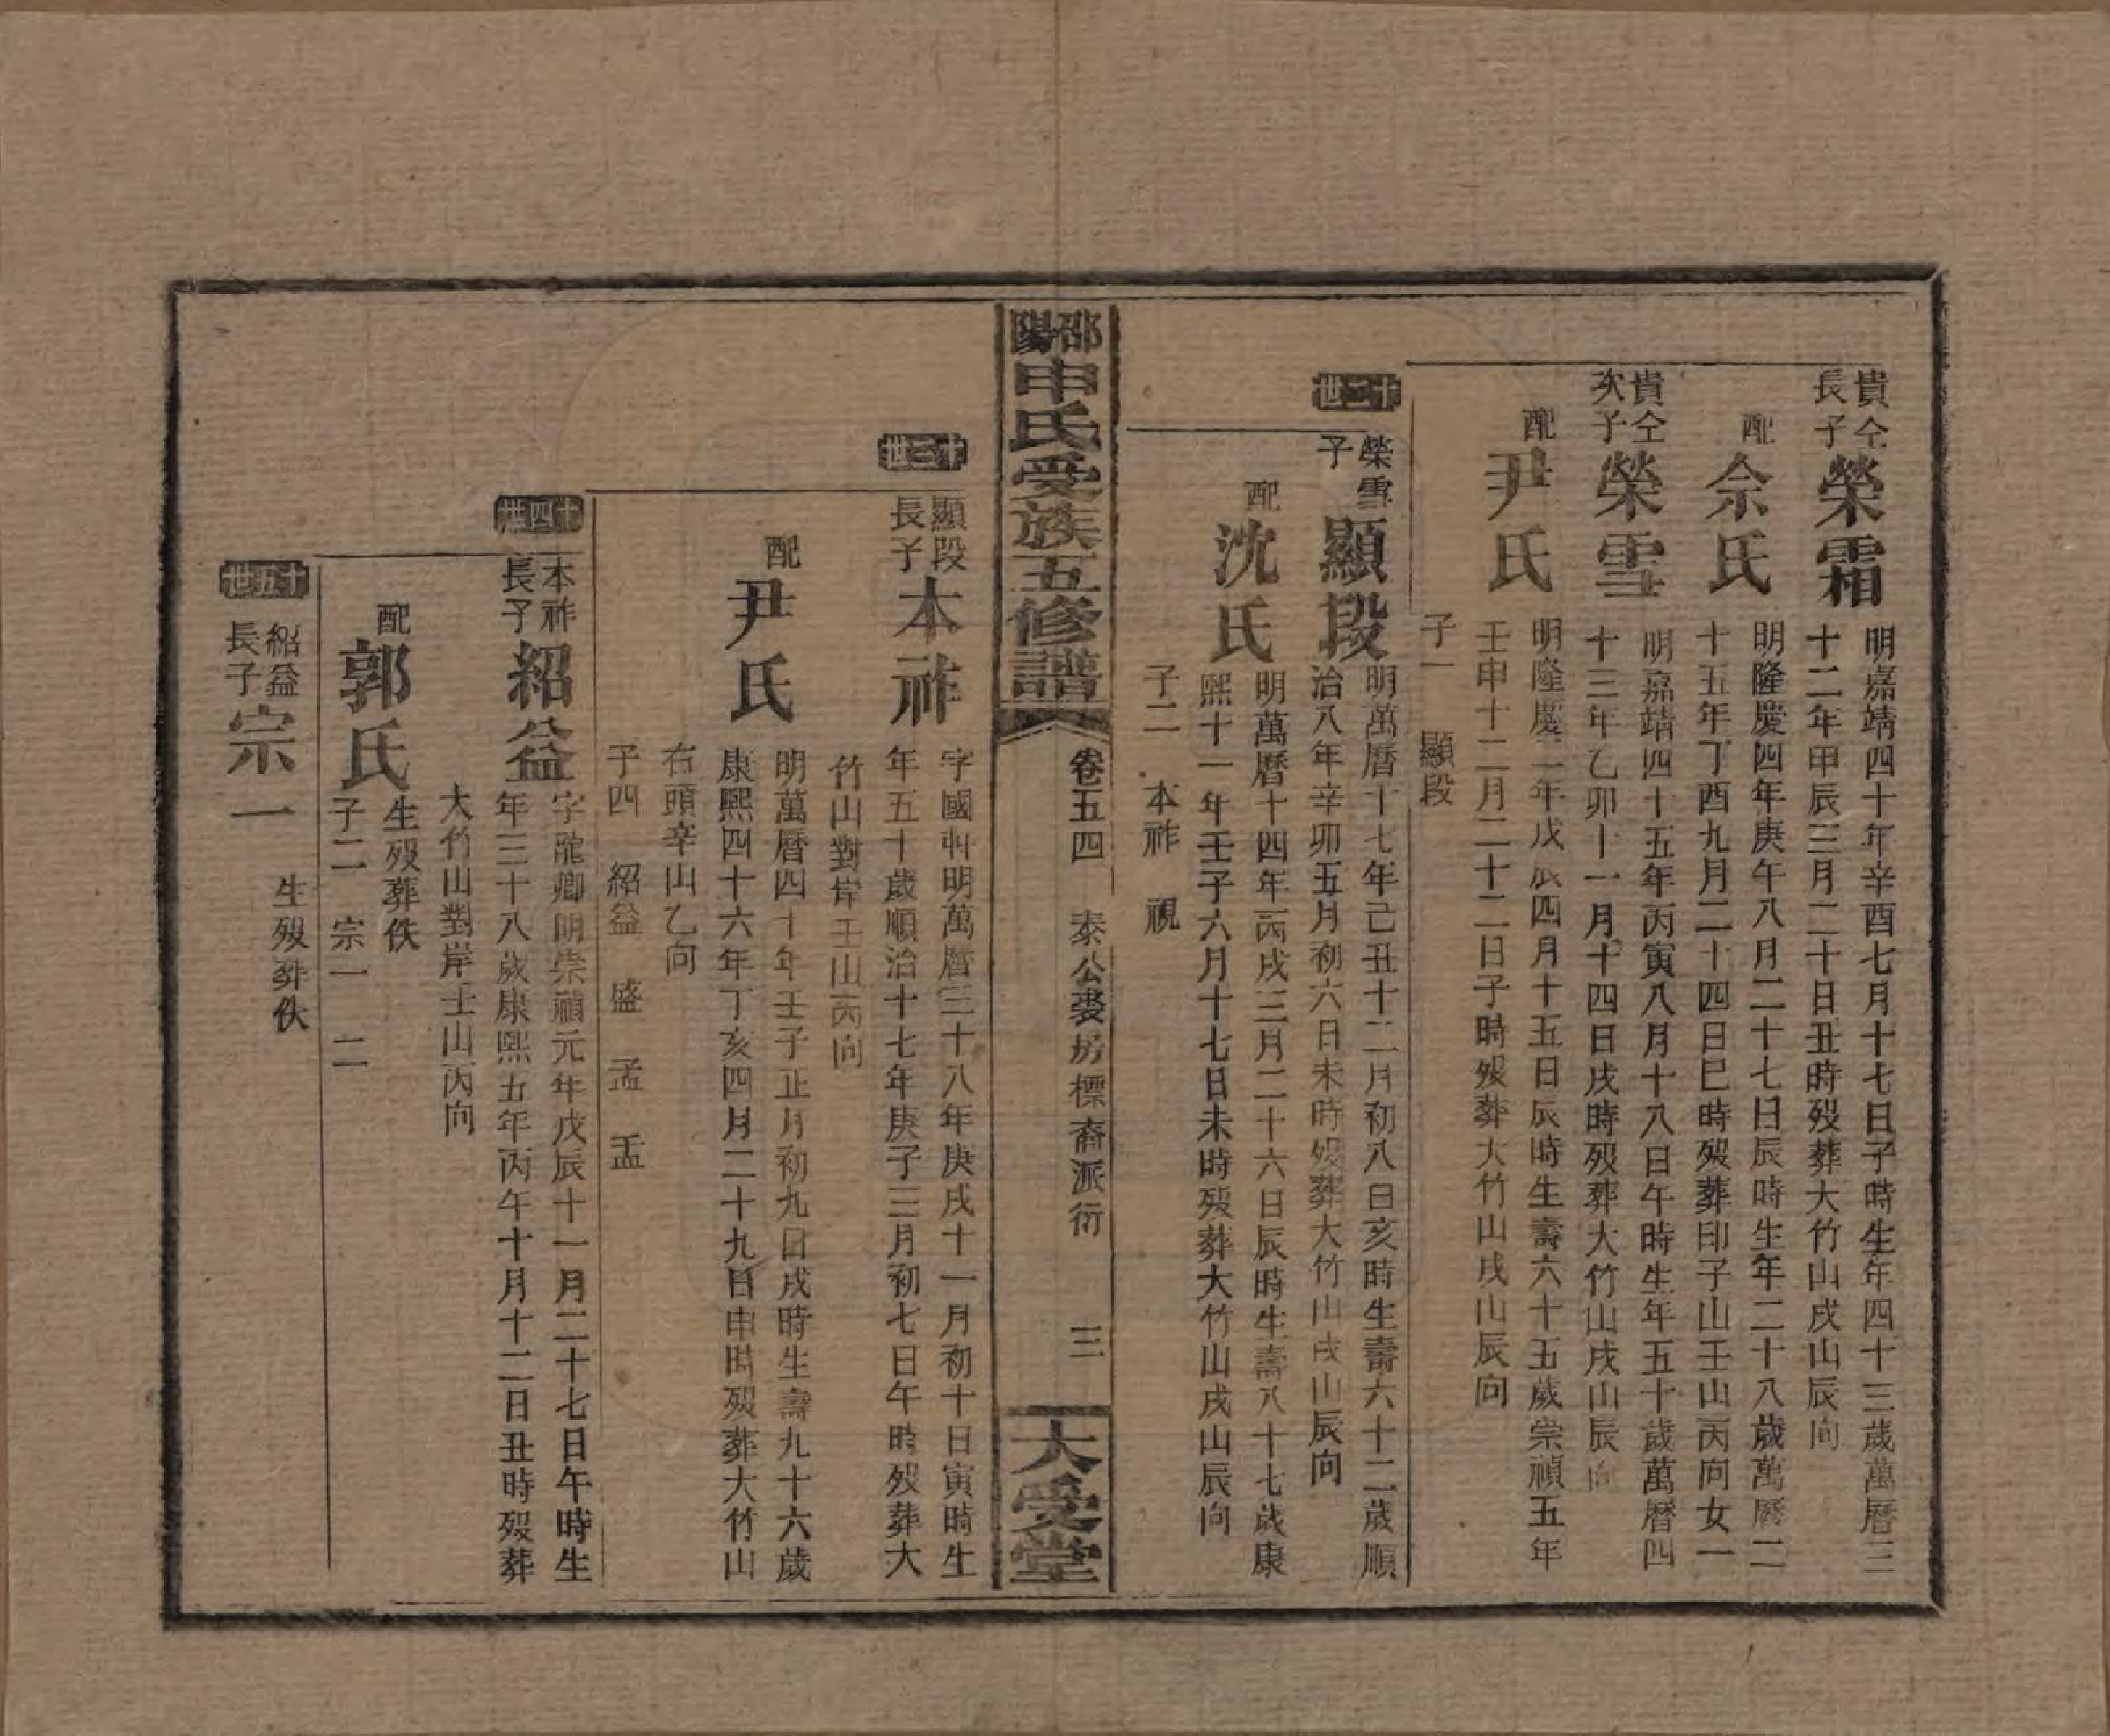 貴仝
長子
榮霜
明嘉靖四十年辛酉七月十七日子時生年四十三歲萬曆三
十二年甲辰三月二十日丑時歿葬大竹山戌山辰向
配
佘氏
明隆慶四年庚午八月二十七日辰時生年二十八歲萬曆二
十五年丁酉九月二十四日巳時歿葬印子山壬山丙向女一
貴仝
次子
榮雪
明嘉靖四十五年丙寅八月十八日午時生年五十歲萬曆四
十三年乙卯十一月十四日戌時歿葬大竹山戌山辰向
配
尹氏
明隆慶二年戊辰四月十五日辰時生壽六十五歲崇禎五年
壬申十二月二十二日子時歿葬大竹山戌山辰向
子一 顯段
十二世
榮雪
子
顯段
明萬曆十七年己丑十二月初八日亥時生壽六十二歲順
治八年辛卯五月初六日未時歿葬大竹山戌山辰向
配
沈氏
明萬曆十四年丙戌三月二十六日辰時生壽八十七歲康
熙十一年壬子六月十七日未時歿葬大竹山戌山辰向
子二 本祚 視
邵陽申氏受族五修譜
卷五四 泰公裘房標裔派衍 三
大受堂
十三世
顯段
長子
本祚
字國明萬曆三十八年庚戌十一月初十日寅時生
年五十歲順治十七年庚子三月初七日午時歿葬大
竹山對岸壬山丙向
配
尹氏
明萬曆四十年壬子正月初九日戌時生壽九十六歲
康熙四十六年丁亥四月二十九日申時歿葬大竹山
右頭辛山乙向
子四 紹益 盛 孟 盂
十四世
本祚
長子
紹益
字龍卿明崇禎元年戊辰十一月二十七日午時生
年三十八歲康熙五年丙午十月十二日丑時歿葬
大竹山對岸壬山丙向
配
郭氏
生歿葬佚
子二 宗一 二
十五世
紹益
長子
宗一
生歿葬佚